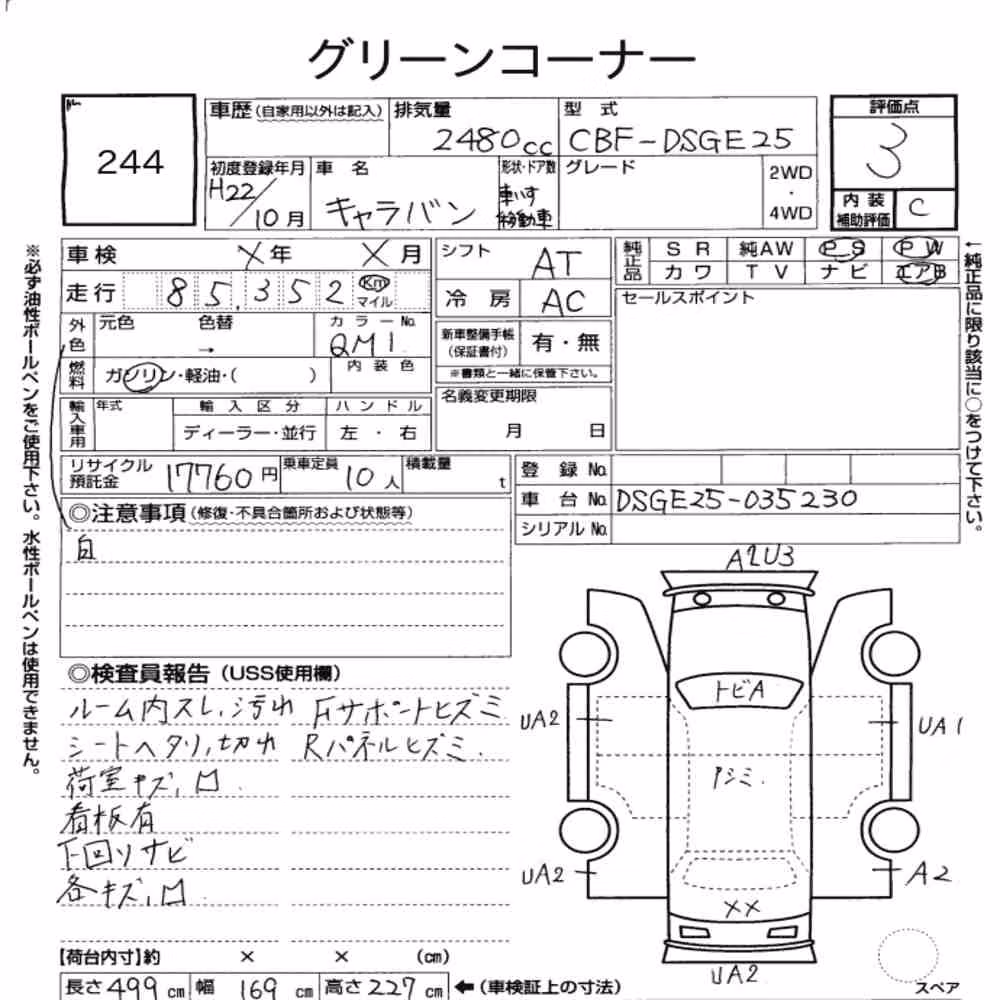 グリーンコーナー
ル
244
車歴 (自家用以外は記入) 排気量 2480cc 型 式 CBF-DSGE25
評価点 3
初度登録年月 H22/10月 車 名 キャラバン 形状・ドア数 車いす移動車 グレード 2WD・4WD
内装補助評価 C
車検 X年 X月
走行 85,352 Km マイル
外色 元色 色替 → カラーNo. QM1
内装色
燃料 ガソリン・軽油・( )
輸入車用 年式 輸入区分 ハンドル
ディーラー・並行 左・右
シフト AT
冷 房 AC
新車整備手帳(保証書付) 有・無
※書類と一緒に保管下さい。
名義変更期限
月 日
純正品 SR 純AW PS PW
カワ TV ナビ エアB
セールスポイント
リサイクル預託金 17760円 乗車定員 10人 積載量 t
登 録 No.
車 台 No. DSGE25-035230
シリアル No.
◎注意事項 (修復・不具合箇所および状態等)
白
◎検査員報告 (USS使用欄)
ルーム内スレ,汚れ Fサポートヒズミ
シートヘタリ,切れ Rパネルヒズミ.
荷室キズ,凹
看板有
下回りサビ
各キズ,凹
【荷台内寸】約 × × (cm)
長さ499cm 幅169cm 高さ227cm ←(車検証上の寸法)
※必ず油性ボールペンをご使用下さい。水性ボールペンは使用できません。
←純正品に限り該当に○をつけて下さい。
A2U3
トビA
UA2
UA1
UA2
A2
XX
UA2
スペア